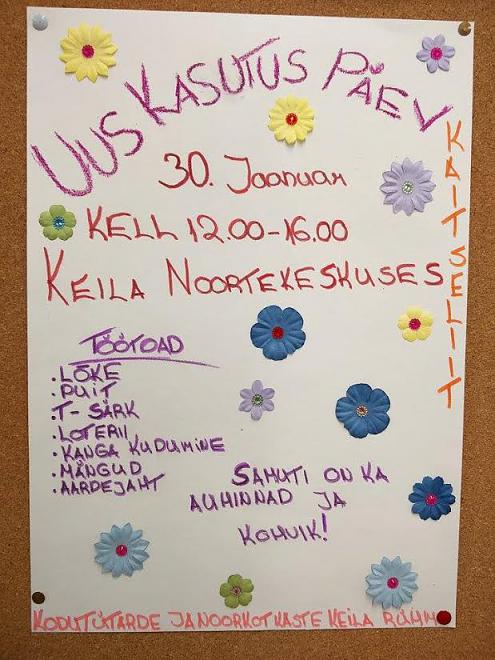 UUSKASUTUS PÄEV
30. Jaanuar
KELL 12.00-16.00
KEILA NOORTEKESKUSES
KAITSELIIT
TÖÖTOAD
. LÕKE
. PUIT
. T- SÄRK
. LOTERII
. KANGA KUDUMINE
. MÄNGUD
. AARDEJAHT
SAMUTI ON KA
AUHINNAD JA
KOHVIK!
KODUTÜTARDE JA NOORKOTKASTE KEILA RÜHM